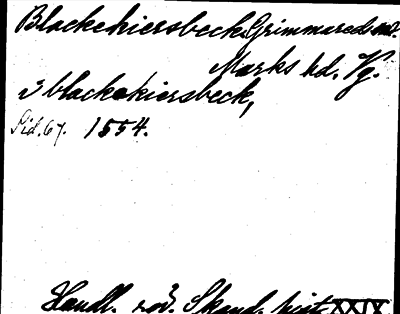 Blackekiersbeck. Grimmareds sn.
Marks hd. Vg.
i blackekiersbeck,
Sid. 67. 1554.
Handl. rör. Skand. hist XXIX